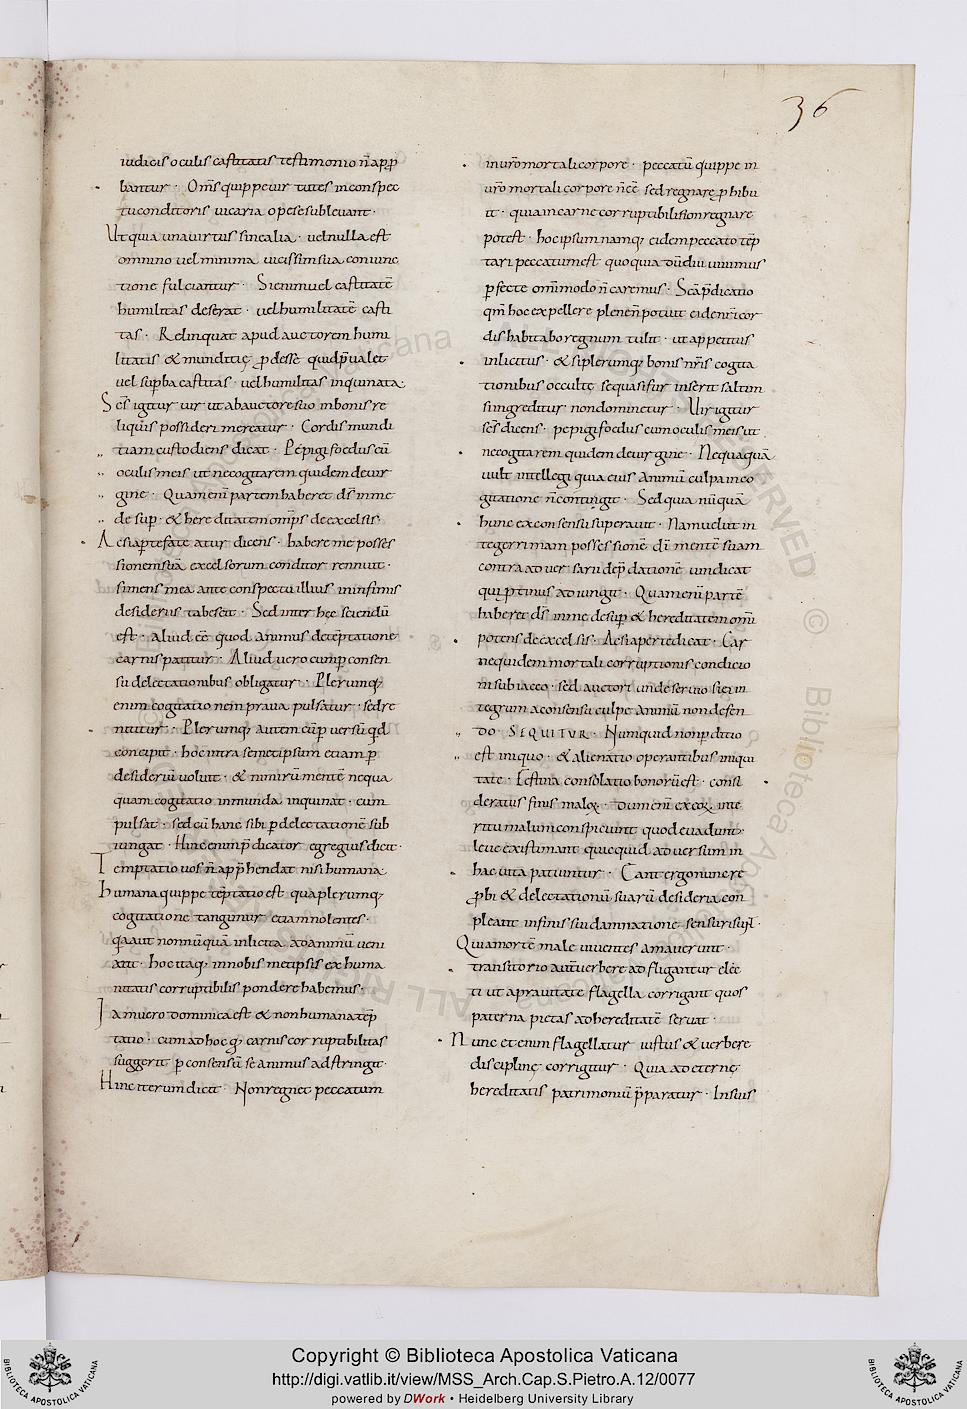 36
iudicis oculis castitatis testimonio n̄ appro
bantur · Om̄s quippe uirtutes in conspec
tu conditoris uicaria ope se subleuant ·
Ut quia una uirtus sine alia · uel nulla est
omnino uel minima uicissim sua coniunc
tione fulciantur · Si enim uel castitatē
humilitas deserat · uel humilitatē casti
tas · Relinquat apud auctorem humi
litatis & munditię ꝓdesse quid p̄ualet
uel sup̄ba castitas · uel humilitas inquinata
Sc̄s igitur uir ut ab auctore suo in bonis re
liquis possideri mereatur · Cordis mundi
tiam custodiens dicat · Pepigi foedus cū
oculis meis ut ne cogitarem quidem de uir
gine · Quam enī partem haberet d̄s in me
de sup̄ · & hereditatem omp̄s de excelsis ·
Ac si ap̄te fateatur dicens · habere me posses
sionem suā excelsorum conditor rennuit ·
si mens mea ante conspectu illius in infimis
desideriis tabescit · Sed inter hęc sciendū
est · aliud eē quod animus detēptatione
carnis patitur · Aliud uero cum ꝑ consen
su delectationibus obligatur · Plerumq;
enim cogitatio nem praua pulsatur · sed re
nititur · Plerumq; autem cū ꝑuersū qd
concipit · hoc intra semetipsum etiam ꝑ
desideriū voluit · & nimirū mentē nequa
quam cogitatio inmunda inquinat · cum
pulsat · sed cū hanc sibi ꝑ delectationē sub
iungat · Hinc enim p̄dicator egregius dicit ·
Temptatio uos n̄ app̄hendat nisi humana
Humana quippe tēptatio est qua plerumq;
cogitatione tangimur etiam nolentes ·
q̄a aut nonnūquā inlicita ad animū ueni
ant · hoc itaq; in nobis metipsis ex huma
nitatis corruptibilis pondere habemus ·
Iam uero dominica est & non humana tēp
tatio · cum ad hoc q̄ carnis corruptibilitas
suggerit ꝑ consensū se animus adstringit ·
Hinc iterum dicit · Non regnet peccatum
in ur̄o mortali corpore · peccatū quippe in
ur̄o mortali corpore n̄ eē sed regnare ꝓhibu
it · quia in carne corruptibili si non regnare
potest · hoc ipsum namq; eidem peccato tēp
tari peccatum est quo quia dū diu uiuimus
ꝑfecte omi modo n̄ caremus · Sc̄a p̄dicatio
qm̄ hoc expellere plene n̄ potuit ei de nr̄i cor
dis habitabo regnum tulit · ut appetitus
inlicitus · & si plerumq; bonis nr̄is cogita
tionibus occulte se quasi fur inserit saltim
si ingreditur non dominetur · Uir igitur
sc̄s dicens · pepigi foedus cum oculis meis ut
ne cogitarem quidem de uirgine · Nequaquā
uult intellegi quia eius animū culpa in co
gitatione n̄ contingit · Sed quia nūquā
hunc ex consensu superauit · Nam uelut in
tegerrimam possessionē dī mentē suam
contra aduersarii dep̄dationē uindicat
qui ꝓtinus adiungit · Quam enī partē
haberet d̄s in me desup̄ & hereditatem omī
potens de excelsis · Ac si aperte dicat · Car
ne quidem mortali corruptionis condicio
ni subiaceo · sed auctori unde seruio si ei in
tegrum a consensu culpe animū non defen
do · SEQUITUR · Numquid non ꝑditio
est iniquo · & alienatio operantibus iniqui
tate · Festina consolatio bonorū est · consi
deratus finis maloꝝ · Dum enī ex eoꝝ inte
ritu malum conspiciunt quod euadunt ·
leue existimant quicquid aduersum in
hac uita patiuntur · Eant ergo nunc re
ꝓbi & delectationū suarū desideria con
pleant in finis sui damnatione sensuri sunt ·
Quia mortē male uiuentes amauerunt ·
transitorio autē uerbere adfligantur elec
ti ut a prauitate flagella corrigant quos
paterna pietas ad hereditatē seruat ·
Nunc etenim flagellatur iustus & uerbere
disciplinę corrigitur · Quia ad eternę
hereditatis patrimoniū p̄paratur · In suis
Copyright © Biblioteca Apostolica Vaticana
http://digi.vatlib.it/view/MSS_Arch.Cap.S.Pietro.A.12/0077
powered by DWork • Heidelberg University Library
BIBLIOTECA APOSTOLICA VATICANA
BIBLIOTECA APOSTOLICA VATICANA